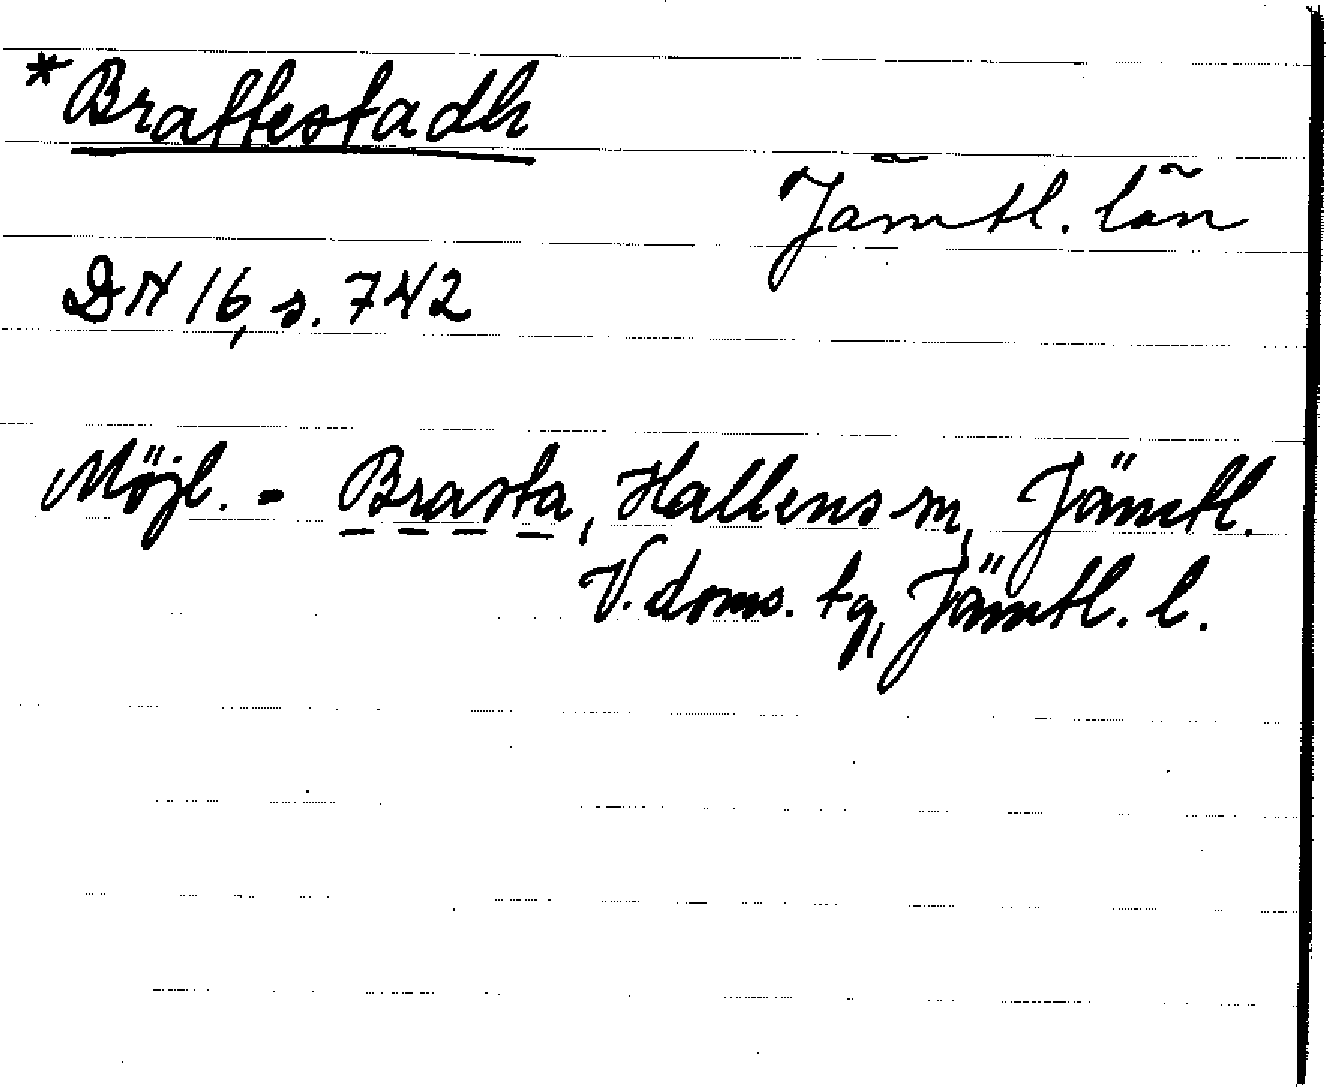 *Braffestadh
Jämtl. län
DN 16, s. 742
Möjl. = Brasta, Hallens sn, Jämtl.
V. doms. tg, Jämtl. l.